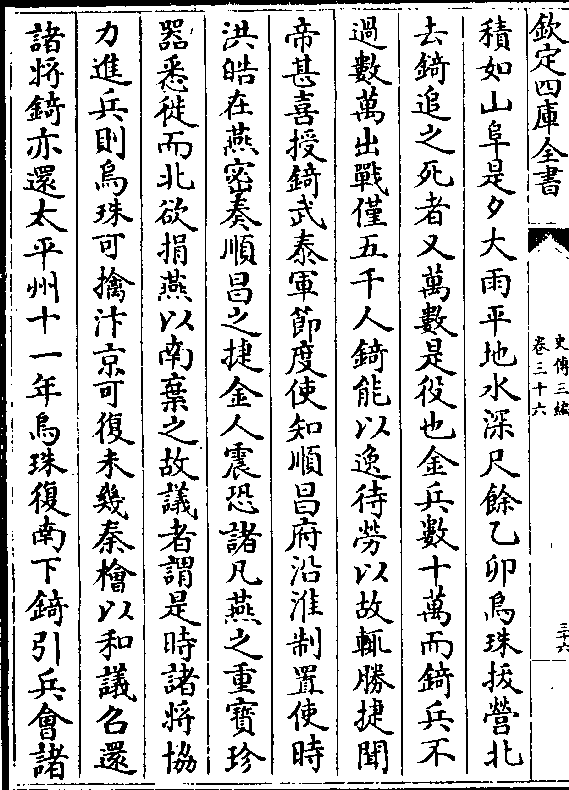 欽定四庫全書
史傳三編
卷三十六
三十六
積如山阜是夕大雨平地水深尺餘乙卯烏珠拔營北
去錡追之死者又萬數是役也金兵數十萬而錡兵不
過數萬出戰僅五千人錡能以逸待勞以故輒勝捷聞
帝甚喜授錡武泰軍節度使知順昌府沿淮制置使時
洪皓在燕密奏順昌之捷金人震恐諸凡燕之重寶珍
器悉徙而北欲捐燕以南棄之故議者謂是時諸將協
力進兵則烏珠可擒汴京可復未幾秦檜以和議召還
諸將錡亦還太平州十一年烏珠復南下錡引兵會諸